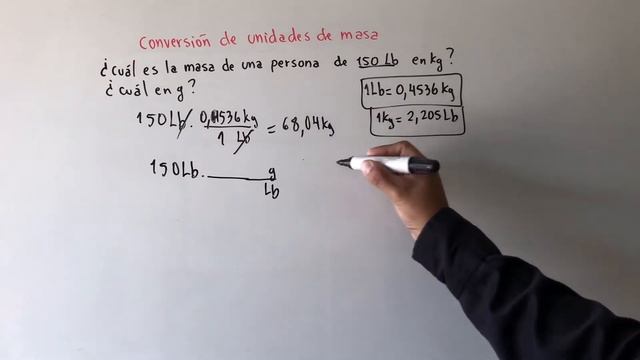 Conversión de unidades de masa
¿Cuál es la masa de una persona de 150 Lb en kg?
¿Cuál en g?
1Lb = 0,4536 kg
1kg = 2,205 Lb
150 Lb . 0,4536 kg
1 Lb
= 68,04 kg
150 Lb . g
Lb